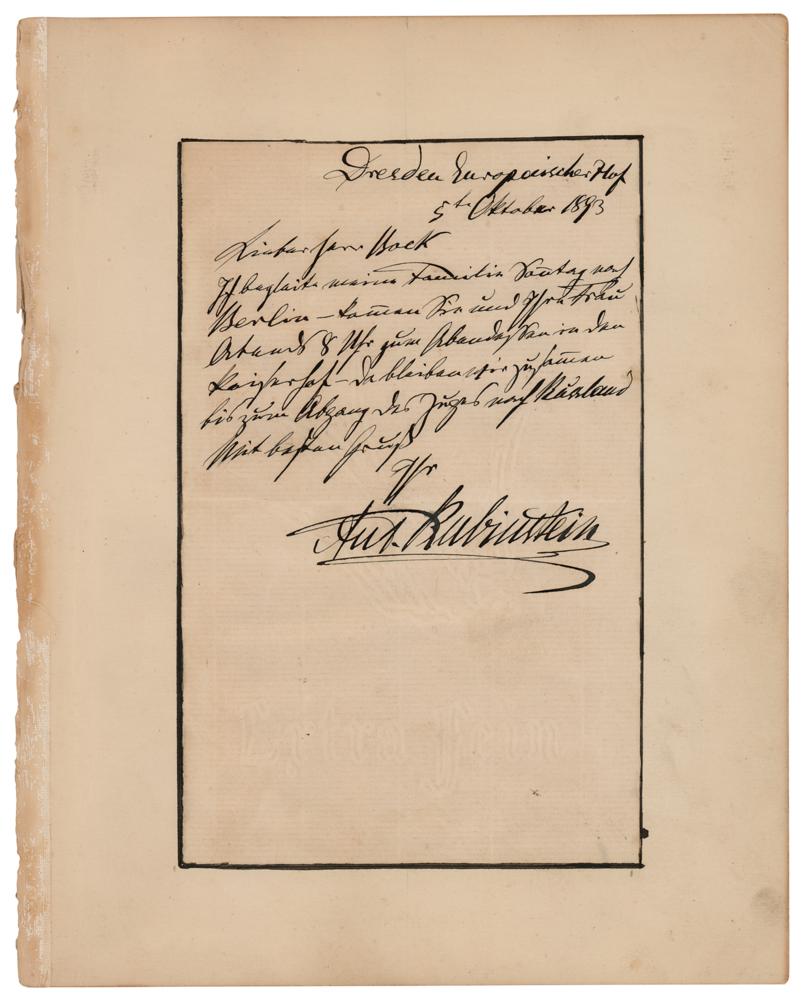 Dresden Europäischer Hof
5te Oktober 1893
Lieber Herr Bock
Ich begleite meine Familie Sonntag nach
Berlin – kommen Sie und Ihre Frau
Abends 8 Uhr zum Abendessen in den
Kaiserhof – da bleiben wir zusammen
bis zum Abgang des Zuges nach Russland
Mit besten Gruß
Ihr
Ant. Rubinstein
Extra Fein